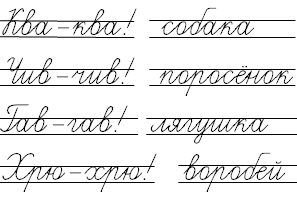 Ква-ква! собака
Чив-чив! поросёнок
Гав-гав! лягушка
Хрю-хрю! воробей